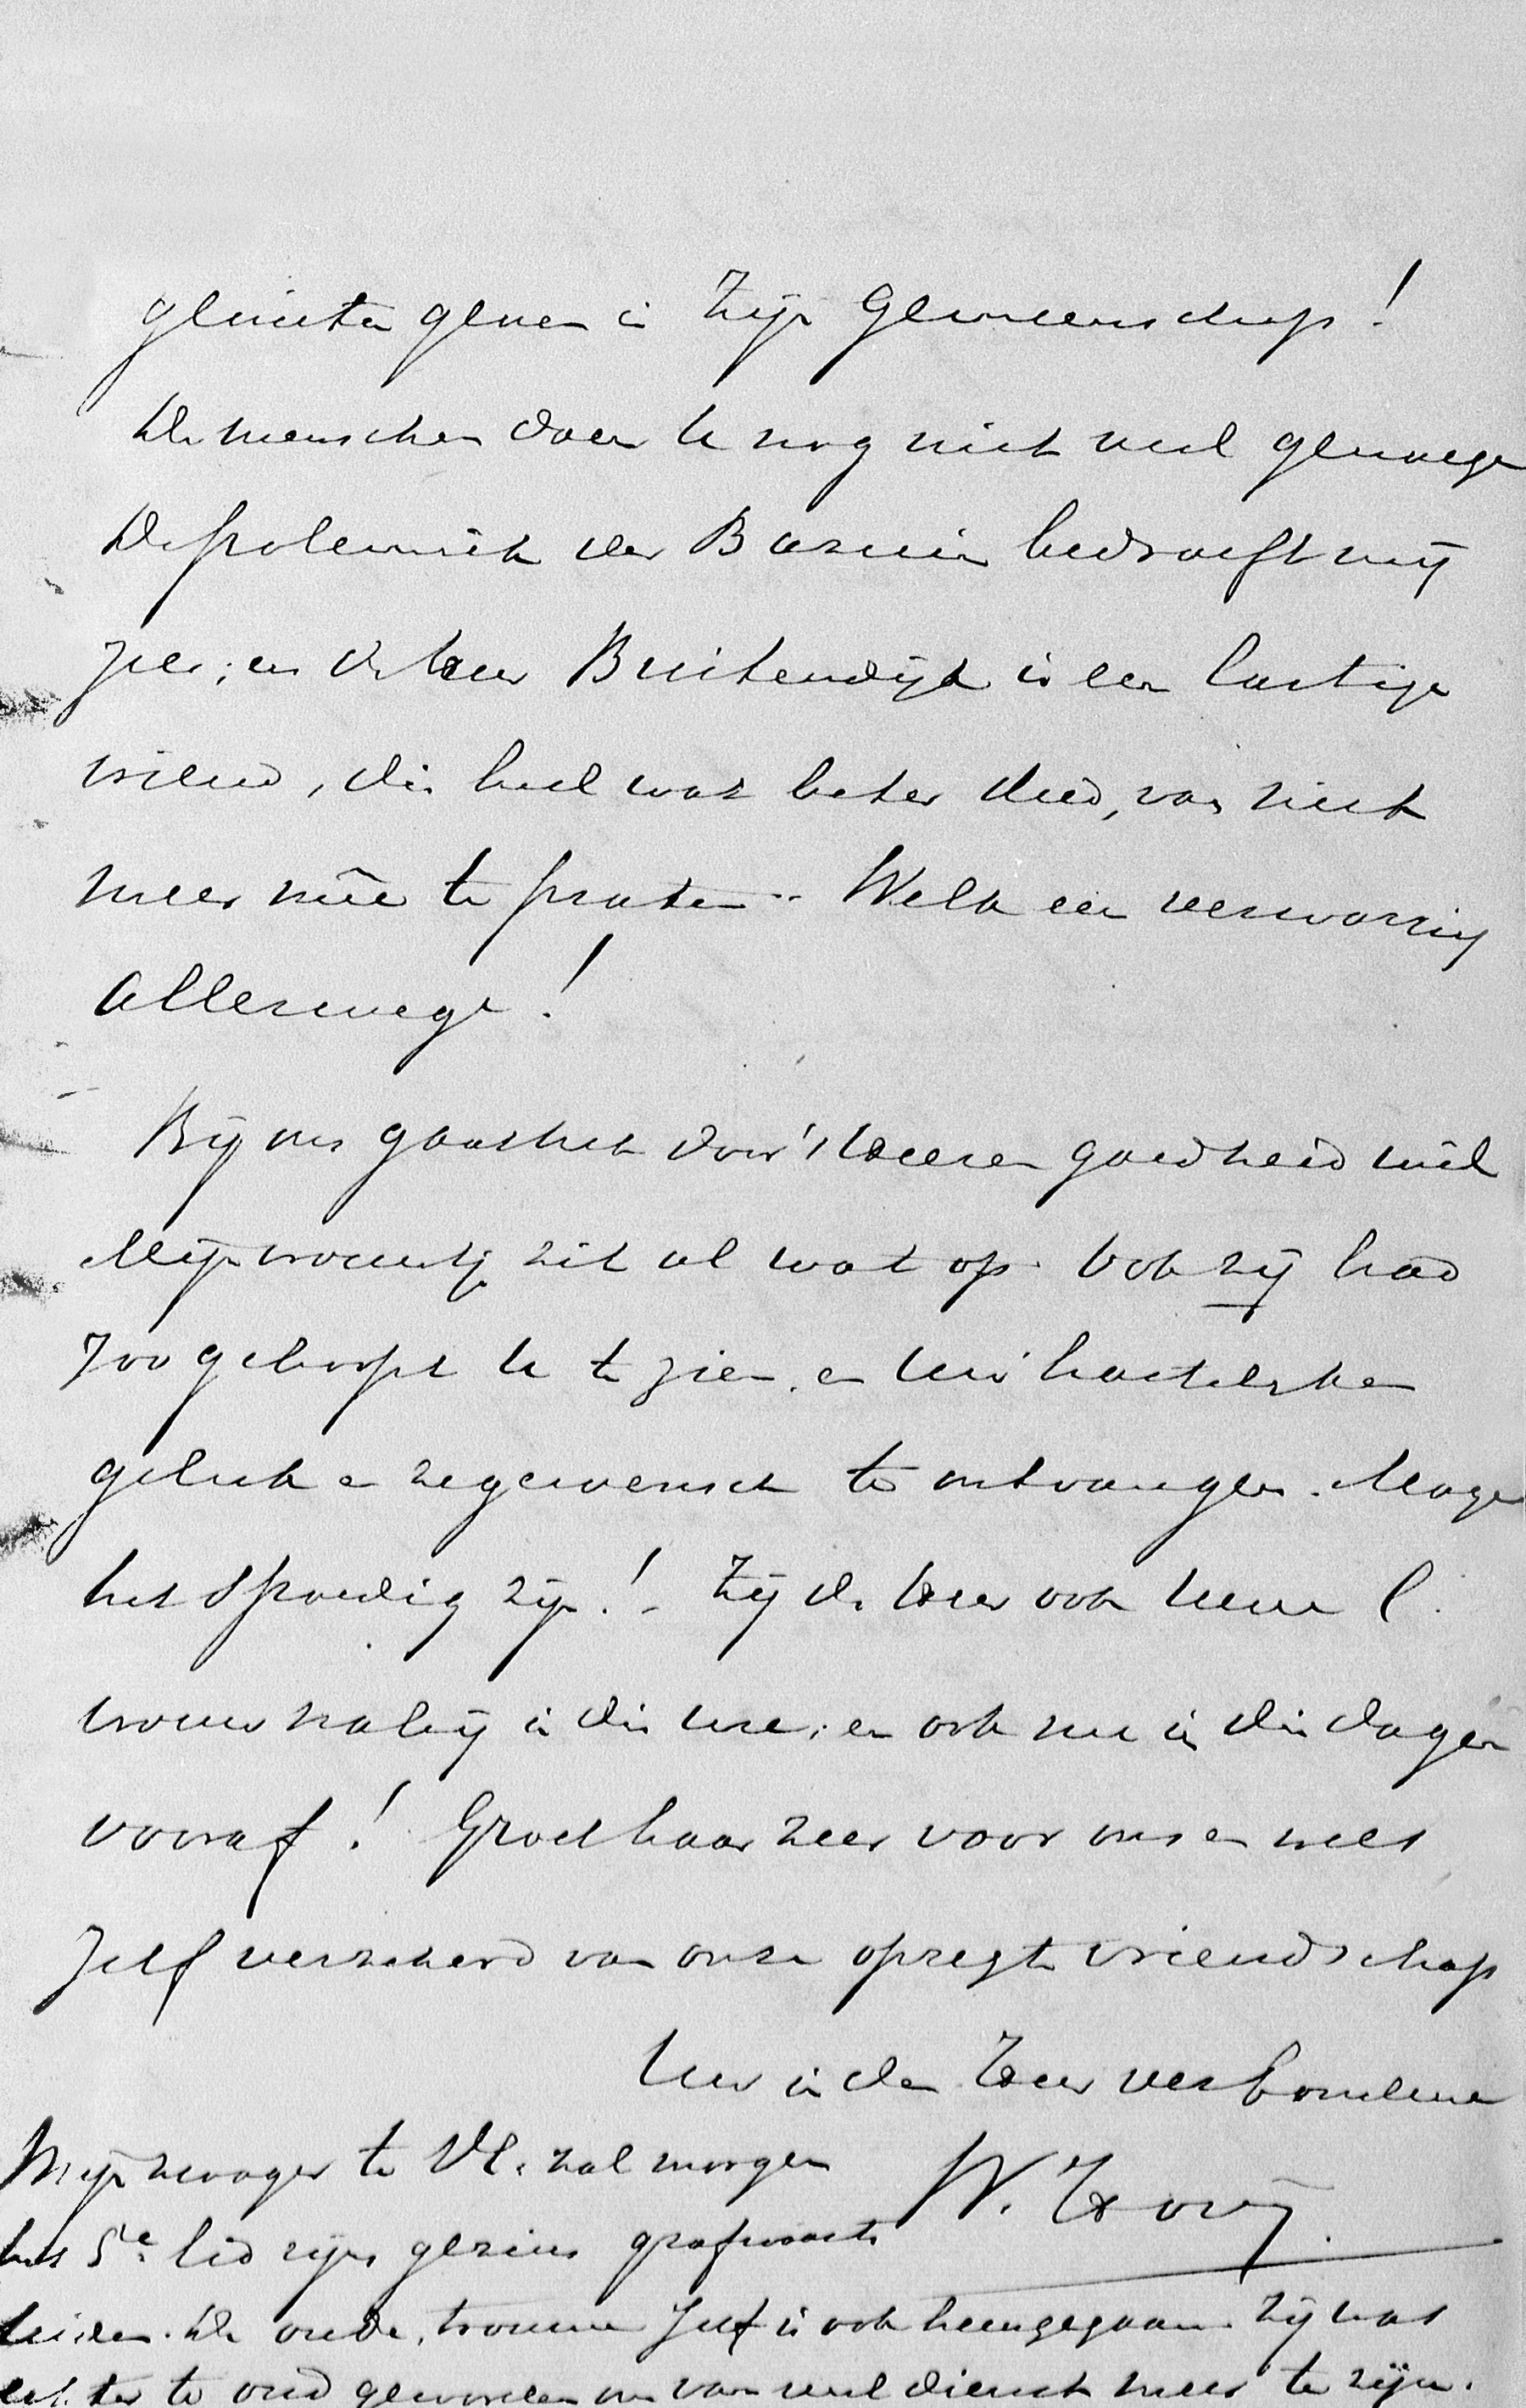 genieten geven in Zijn Gemeenschap!
De menschen doen U nog niet veel genoegen
De polemiek der Bazuin bedroeft mij
zeer; en de heer Buitendijk is een lastige
vriend, die heel wat beter deed, van niet
meer mêe te praten.. Welk een verwarring
allerwege!
Bij ons gaat het door 's Heeren goedheid wél
Mijn vrouwtje zit al wat op. Ook zij had
zoo gehoopt U te zien, en Uw hartelijken
geluk en zegenwensch te ontvangen. Moge
het spoedig zijn! - Zij de Heer ook Uwe l.
vrouw nabij in die ure; en ook nu in die dagen
vooraf! Groet haar zeer voor ons en wees
zelf verzekerd van onze opregte vriendschap
Uw in den Heer verbondene
W. Hovij.
Mijn zwager te Vl. zal morgen
het 5e lid zijns gezins grafwaarts
leiden. De oude, trouwe Jet is ook heengegaan. Zij was
echter te oud geworden om van veel dienst meer te zijn.